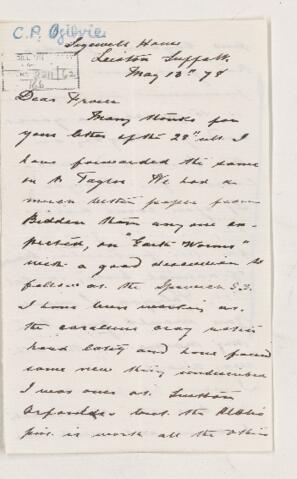 C. P. Ogilvie
Sizewell House
Leiston Suffolk
May 13th 78
Dear Fraser
Many thanks for
your letter of the 28th ult I
have forwarded the same
on to Taylor We had a
much better paper from
Bidden than any one ex-
pected, on "Earth Worms"
with a good discussion to
follow at the Ipswich S.S.
I have been working at
the coralline crag
and have found
some new things undescribed
I was over at Sutton
but the
pit is worth all the others